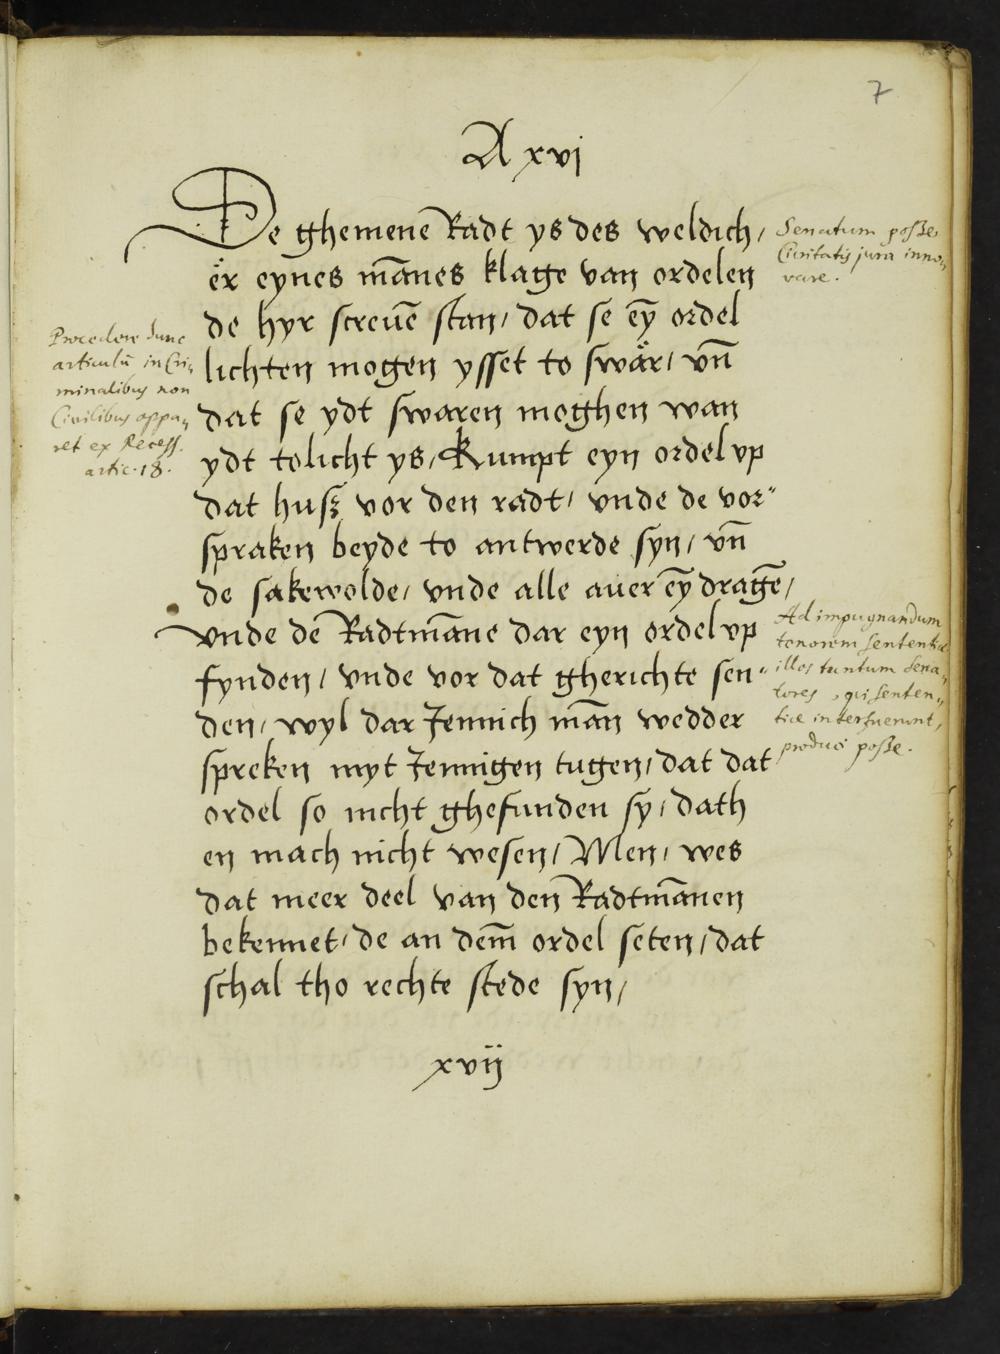 7
A xvi
De ghemene Radt ys des weldich,
er eynes mānes klage van ordelen
de hyr screuē stan, dat se eȳ ordel
lichten mogen ysset to swår, vn̄
dat se ydt swaren moghen wan
ydt tolicht ys, Kumpt eyn ordel vp
dat husz vor den radt, vnde de vor"
spraken beyde to antwerde syn, vn̄
de sakewolde, vnde alle auer eȳ dragē,
vnde de Radtmāne dar eyn ordel vp
fynden, vnde vor dat gherichte sen"
den, wyl dar Jennich mān wedder
spreken myt Jennigen tugen, dat dat
ordel so nicht ghefunden sy, dath
en mach nicht wesen, Men, wes
dat meer deel van den Radtmānen
bekennet, de an dem̄ ordel seten, dat
schal tho rechte stede syn,
xvij
Senatum posse
Civitatis jura inno,
vare.
Procedere hunc
articulū in Cri,
minalibus non
Civilibus appa,
ret ex Recess.
artic. 18.
Ad impugnandum
tenorem sententiæ
illos tantum Sena,
tores, qui senten,
tiæ interfuerunt,
produci posse.